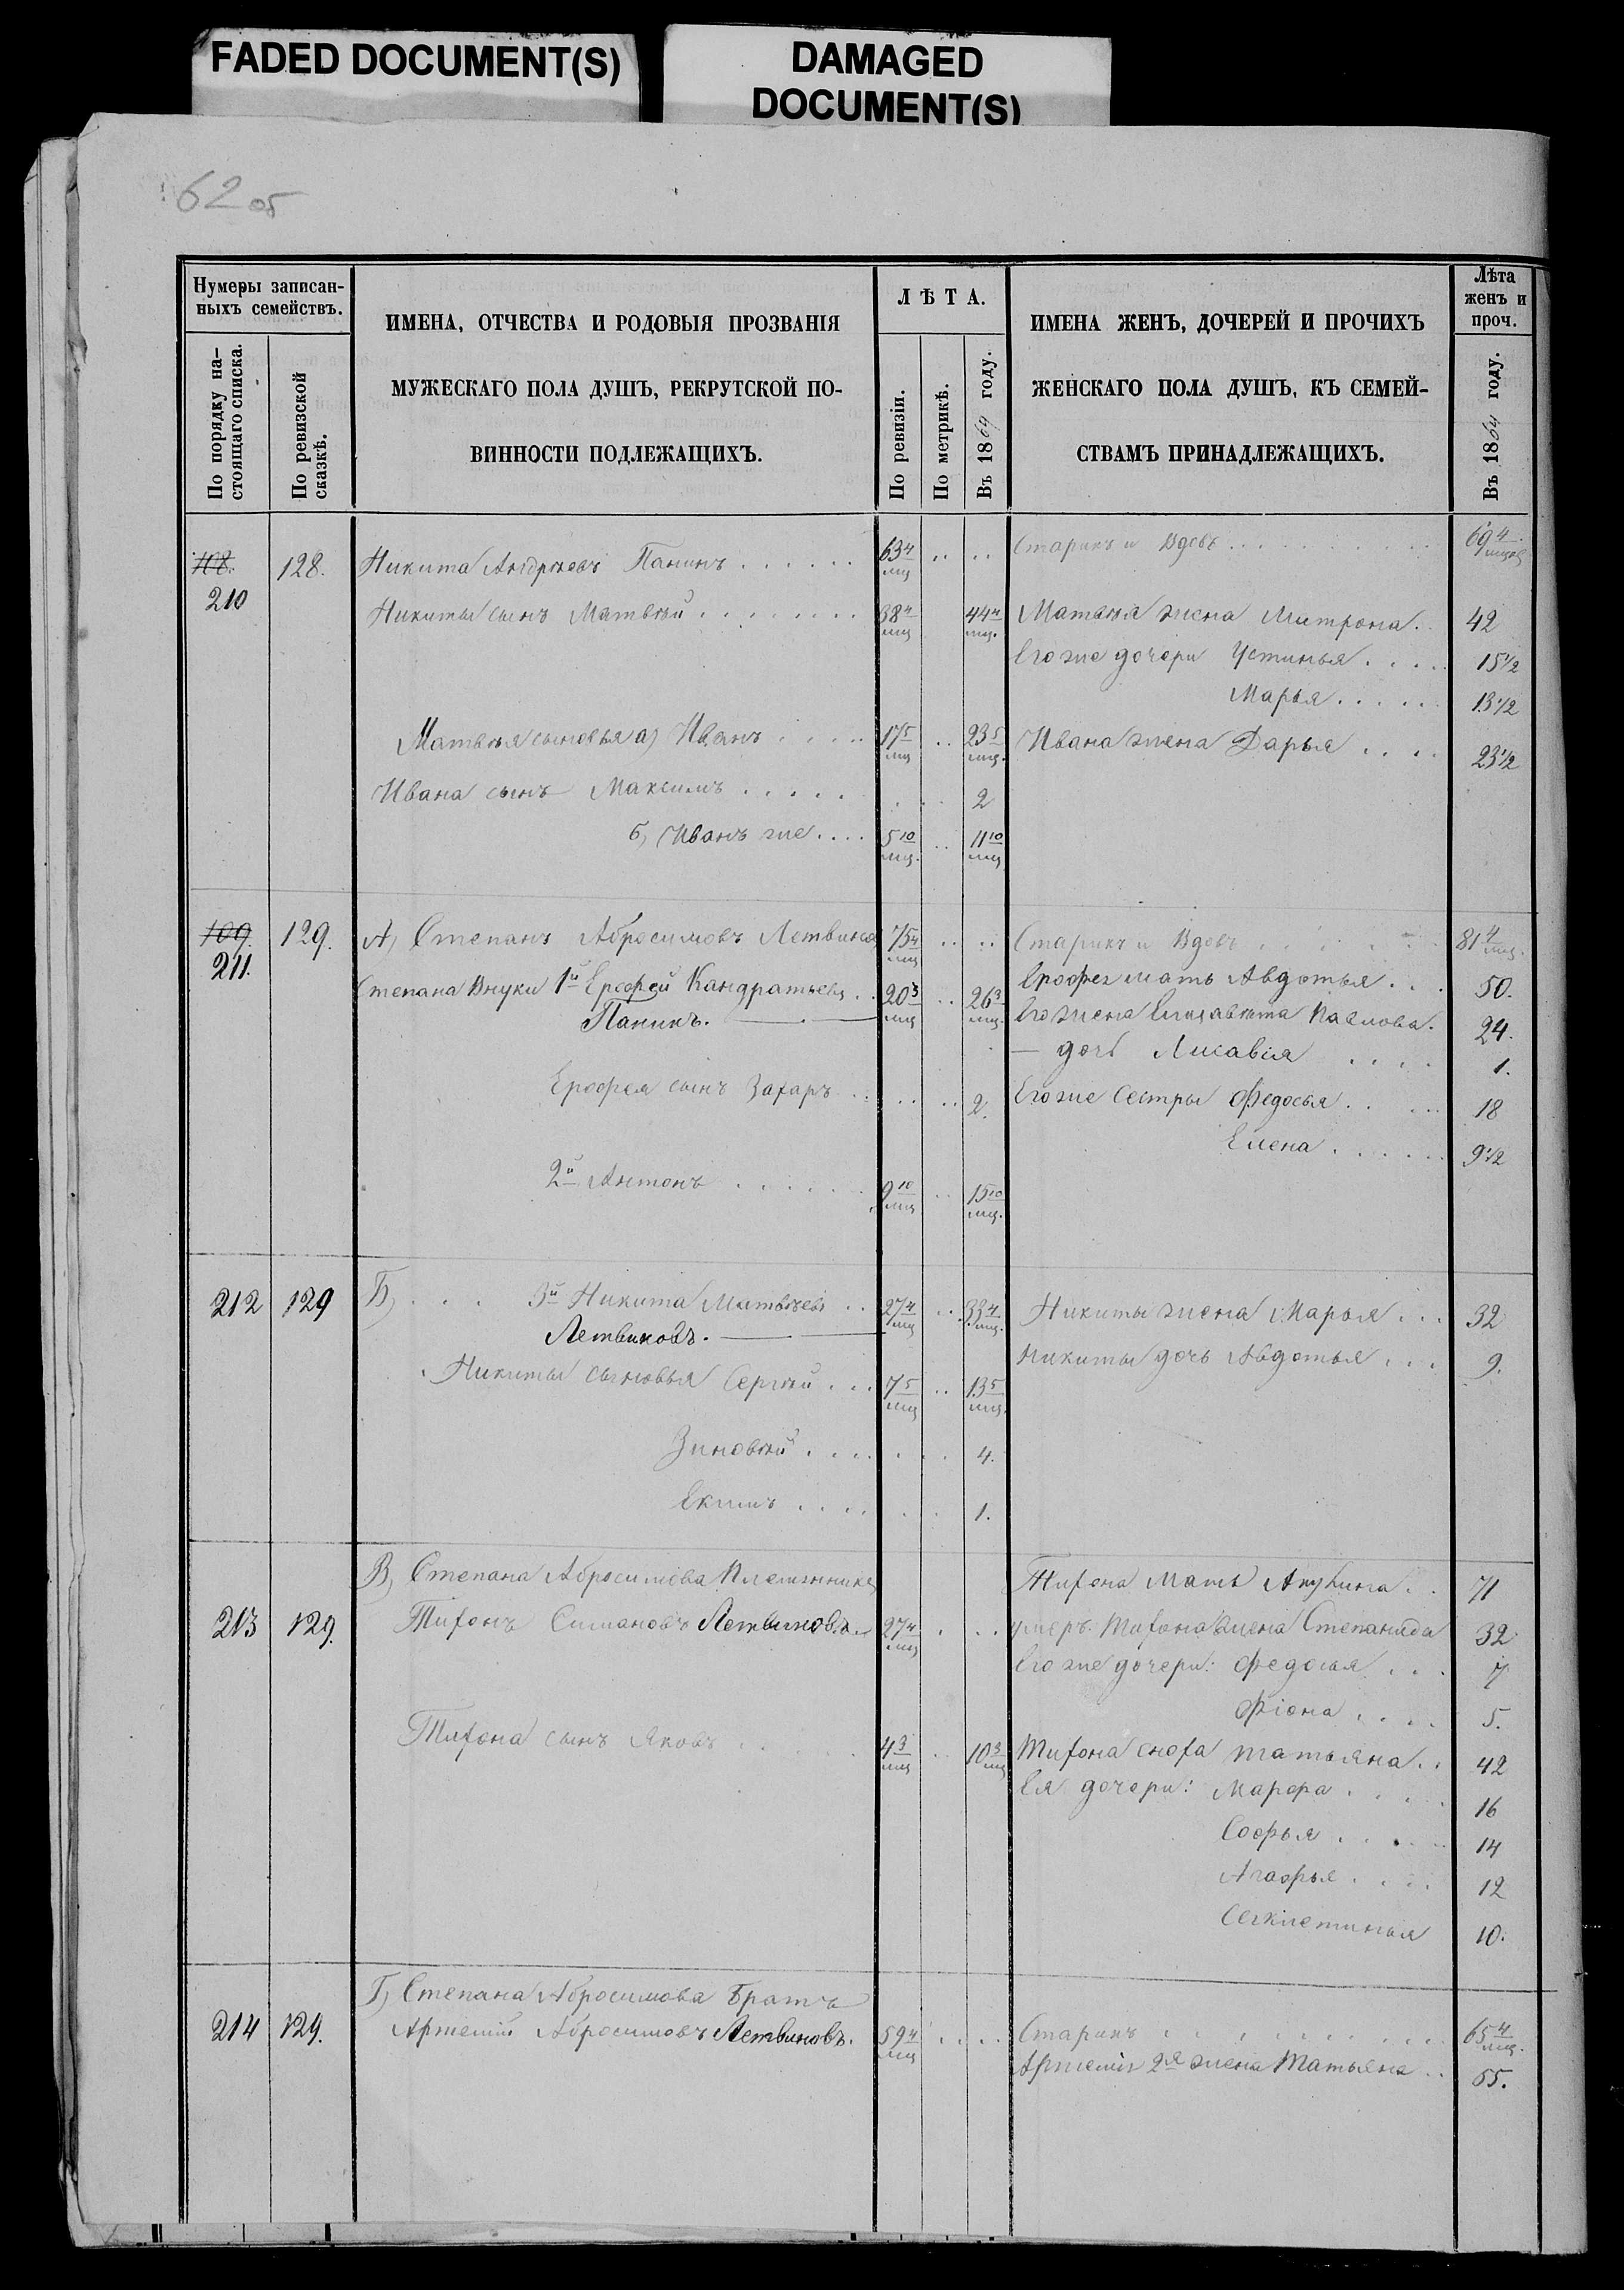 FADED DOCUMENT(S)
DAMAGED
DOCUMENT(S)
62 об
Нумеры записан-
ныхъ семействъ.
По порядку на-
стоящаго списка.
По ревизской
сказкѣ.
ИМЕНА, ОТЧЕСТВА И РОДОВЫЯ ПРОЗВАНІЯ
МУЖЕСКАГО ПОЛА ДУШЪ, РЕКРУТСКОЙ ПО-
ВИННОСТИ ПОДЛЕЖАЩИХЪ.
ЛѢТА.
По ревизіи.
По метрикѣ.
Въ 1864 году.
ИМЕНА ЖЕНЪ, ДОЧЕРЕЙ И ПРОЧИХЪ
ЖЕНСКАГО ПОЛА ДУШЪ, КЪ СЕМЕЙ-
СТВАМЪ ПРИНАДЛЕЖАЩИХЪ.
Лѣта
женъ и
проч.
Въ 1864 году.
108. 128. Никита Андреевъ Панинъ 63 4/мц Старикъ и Вдовъ 69 4/мцов
210
Никиты сынъ Матвѣй 38 4/мц 44 4/мц. Матвѣя жена Митрона. 42
Его же дочери Устинья 15 1/2
Марья 13 1/2
Матвѣя сыновья а) Иванъ 17 5/мц 23 5/мц. Ивана жена Дарья 23 1/2
Ивана сынъ Максимъ 2
б) Иванъ же 5 10/мц. 11 10/мц
109. 129. А) Степанъ Абросимовъ Летвиновъ 75 4/мц Старикъ и Вдовъ 81 4/мц.
211.
Степана Внуки 1й Ерофей Кандратьевъ 20 3/мц 26 3/мц. Ерофея мать Авдотья 50.
Панинъ. Его жена Елизавѣта Павлова. 24.
— дочь Лисавія 1.
Ерофея сынъ Захаръ 2. Его же Сестры Федосья 18
Елена 9 1/2
2й Антонъ 9 10/мц 15 10/мц.
212 129 Б) 3й Никита Матвѣевъ 27 4/мц 33 4/мц. Никиты жена Марья 32
Летвиновъ. Никиты дочь Авдотья 9.
Никиты сыновья Сергѣй 7 5/мц 13 5/мц.
Зиновѣй 4.
Екимъ 1.
В) Степана Абросимова Племянникъ Тифона Мать Акулина 71
213 129. Тифонъ Симановъ Летвиновъ 27 4/мц умеръ. Тифона жена Степанида 32
Его же дочери: Федосья 7
Фіона 5.
Тифона сынъ Яковъ 4 3/мц 10 3/мц Тифона сноха татьяна 42
Ея дочери: Марфа 16
Софья 14
Агафья 12
10.
Г) Степана Абросимова Братъ
214 129. Артемій Абросимовъ Летвиновъ. 59 4/мц Старикъ 65 4/мц.
Артемія 2я жена Татьяна 55.